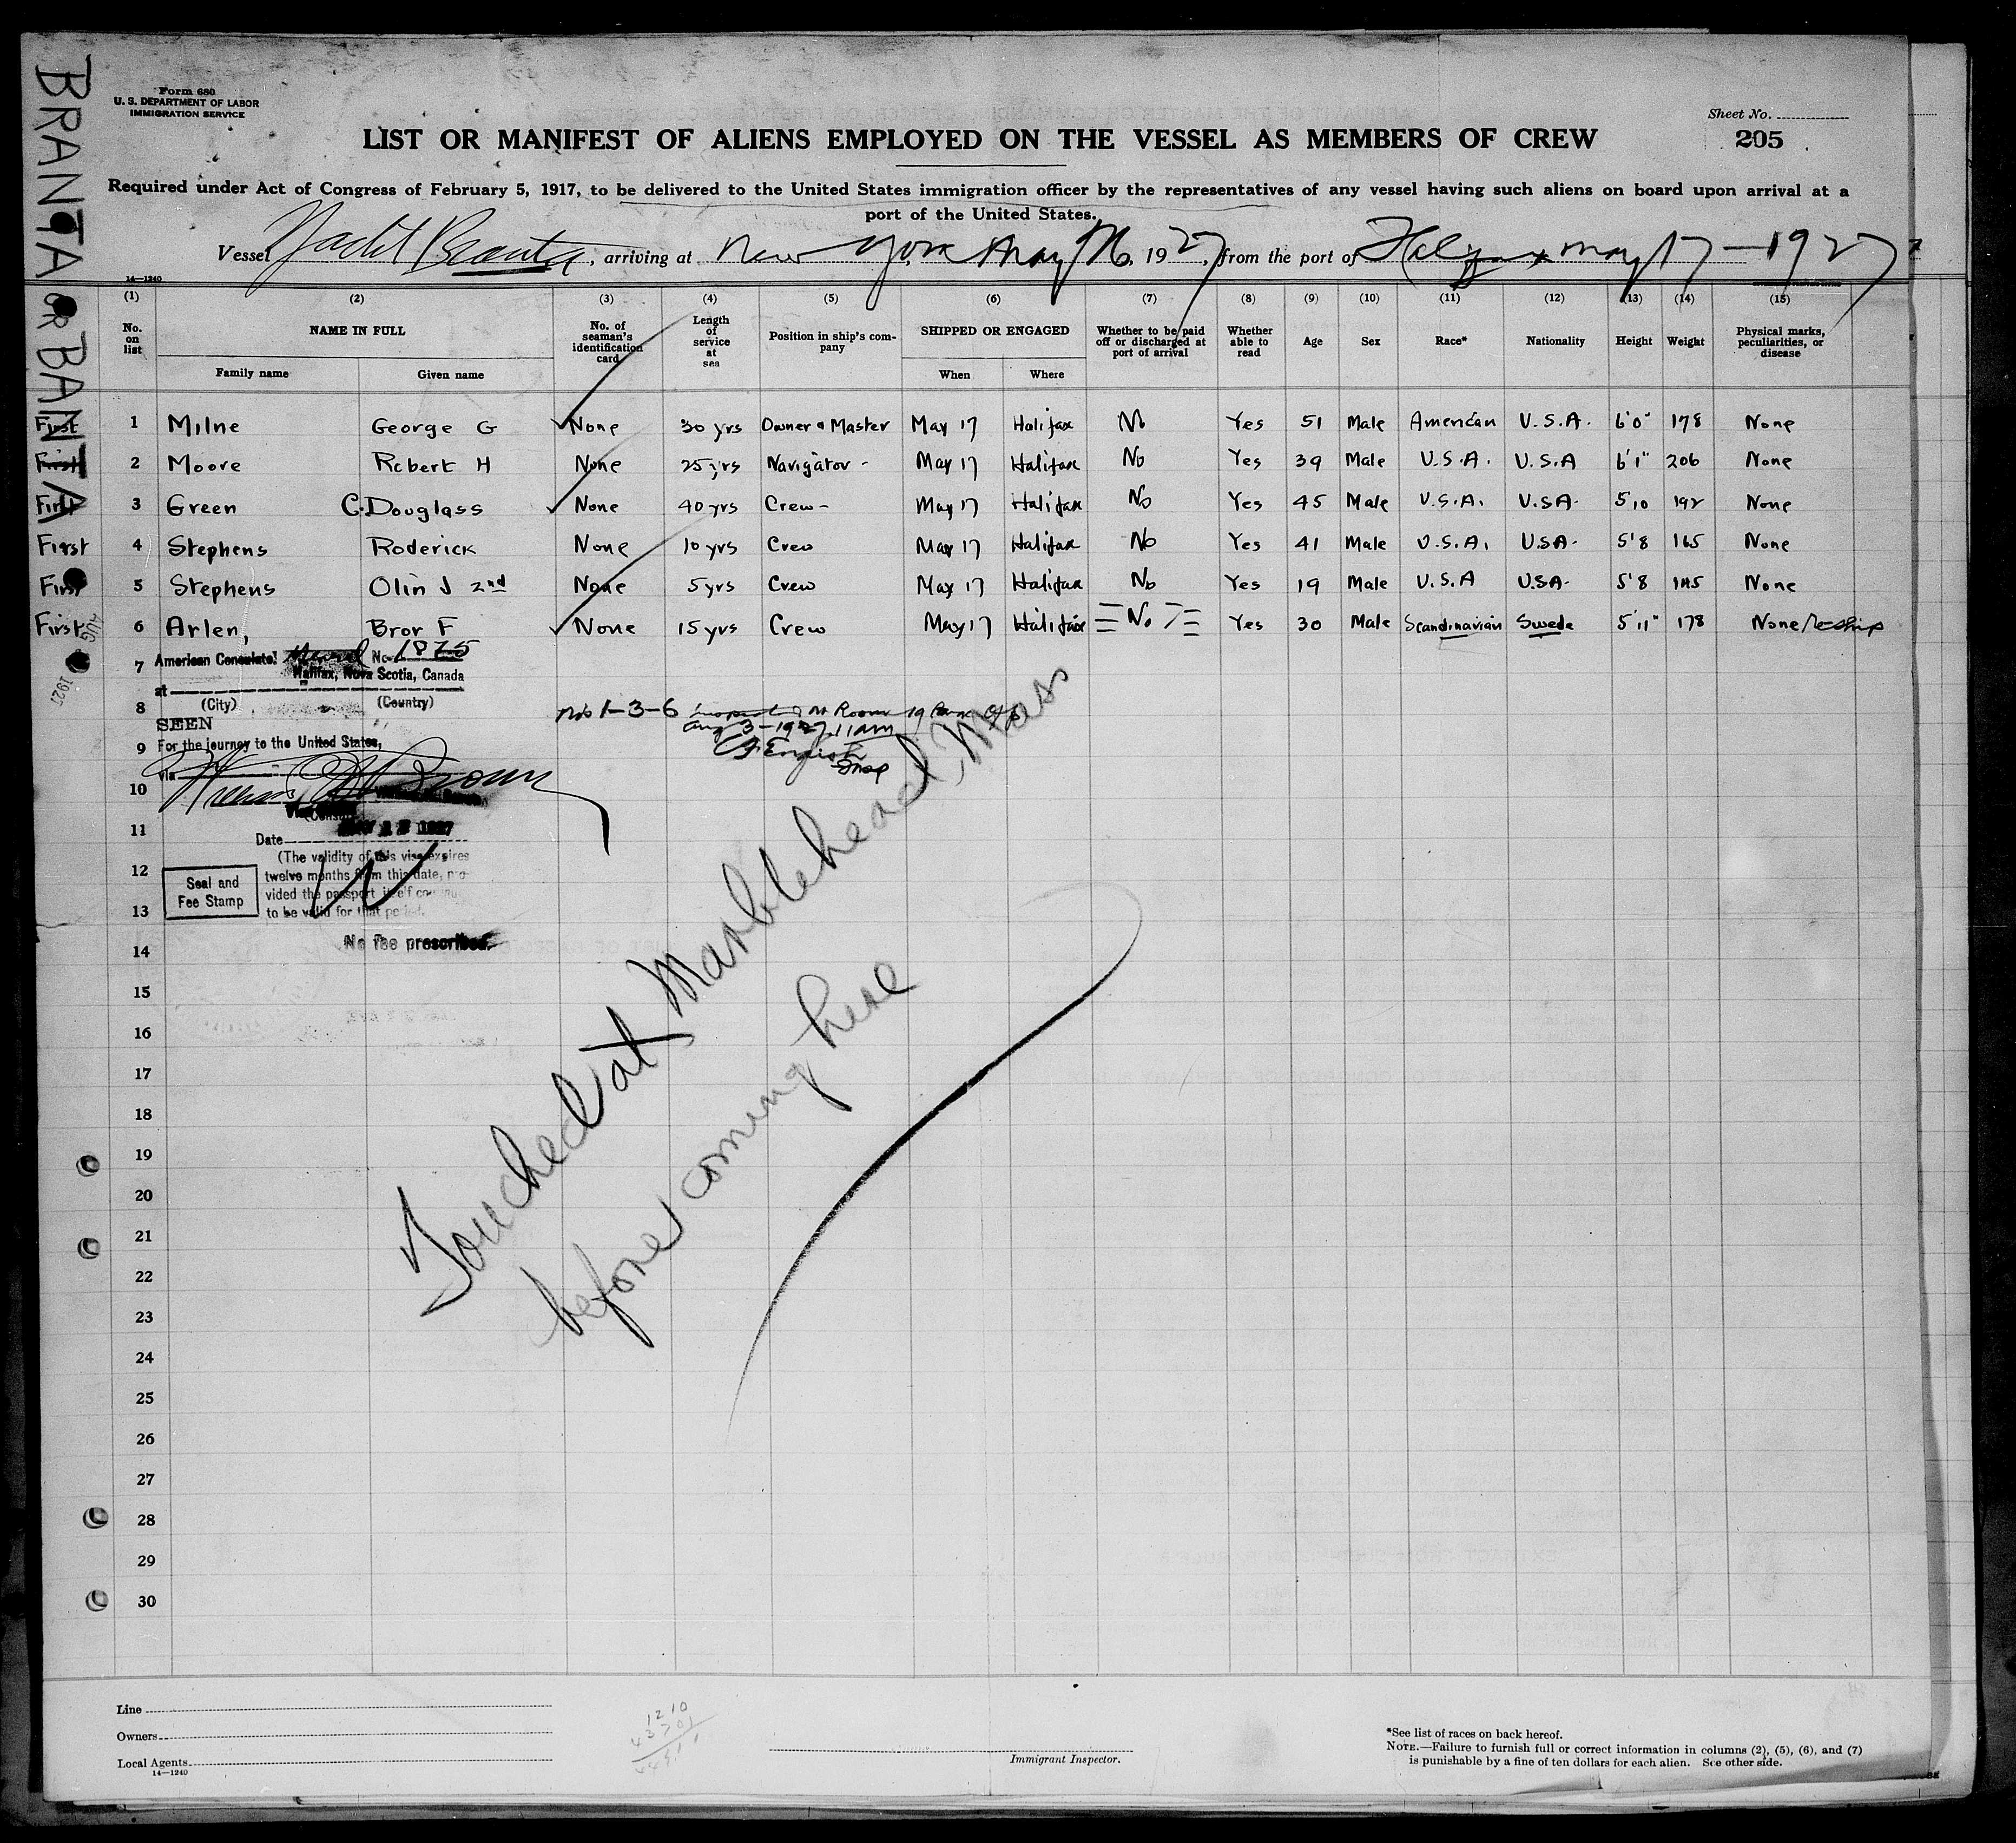 BRANTA OR BANTA
Form 680
U. S. DEPARTMENT OF LABOR
IMMIGRATION SERVICE
Sheet No.
205
LIST OR MANIFEST OF ALIENS EMPLOYED ON THE VESSEL AS MEMBERS OF CREW
Required under Act of Congress of February 5, 1917, to be delivered to the United States immigration officer by the representatives of any vessel having such aliens on board upon arrival at a
port of the United States.
Vessel Yacht Branta, arriving at New York May, 1927, from the port of Halifax May 17-1927
14-1240
(1) (2) (3) (4) (5) (6) (7) (8) (9) (10) (11) (12) (13) (14) (15)
No. on list NAME IN FULL No. of seaman's identification card Length of service at sea Position in ship's company SHIPPED OR ENGAGED Whether to be paid off or discharged at port of arrival Whether able to read Age Sex Race* Nationality Height Weight Physical marks, peculiarities, or disease
Family name Given name When Where
First 1 Milne George G None 30 yrs Owner & Master May 17 Halifax No Yes 51 Male American U.S.A. 6'0" 178 None
First 2 Moore Robert H None 25 yrs Navigator - May 17 Halifax No Yes 39 Male U.S.A. U.S.A 6'1" 206 None
First 3 Green C. Douglass None 40 yrs Crew - May 17 Halifax No Yes 45 Male U.S.A. U.S.A. 5,10 192 None
First 4 Stephens Roderick None 10 yrs Crew May 17 Halifax No Yes 41 Male U.S.A. U.S.A. 5'8 165 None
First 5 Stephens Olin J 2nd None 5 yrs Crew May 17 Halifax No Yes 19 Male U.S.A U.S.A. 5'8 145 None
First 6 Arlen, Bror F None 15 yrs Crew May 17 Halifax No Yes 30 Male Scandinavian Swede 5'11" 178 None/reship
AUG 1927
7 American Consulate No. 1875
Halifax, Nova Scotia, Canada
at
8 (City) (Country)
SEEN
nos 1-3-6 Room 19
Aug 3-1927 11am
English
Insp
9 For the journey to the United States,
via
10
(Consul)
11 1927
Date
(The validity of this visa expires
12 twelve months from this date, pro-
vided the passport itself
13 to be valid for that period.
Seal and
Fee Stamp
14 No fee prescribed.
Touched at Marblehead Mass
before coming here
15
16
17
18
19
20
21
22
23
24
25
26
27
28
29
30
Line
Owners
Local Agents
14-1240
1210
Immigrant Inspector.
*See list of races on back hereof.
NOTE.—Failure to furnish full or correct information in columns (2), (5), (6), and (7)
is punishable by a fine of ten dollars for each alien. See other side.